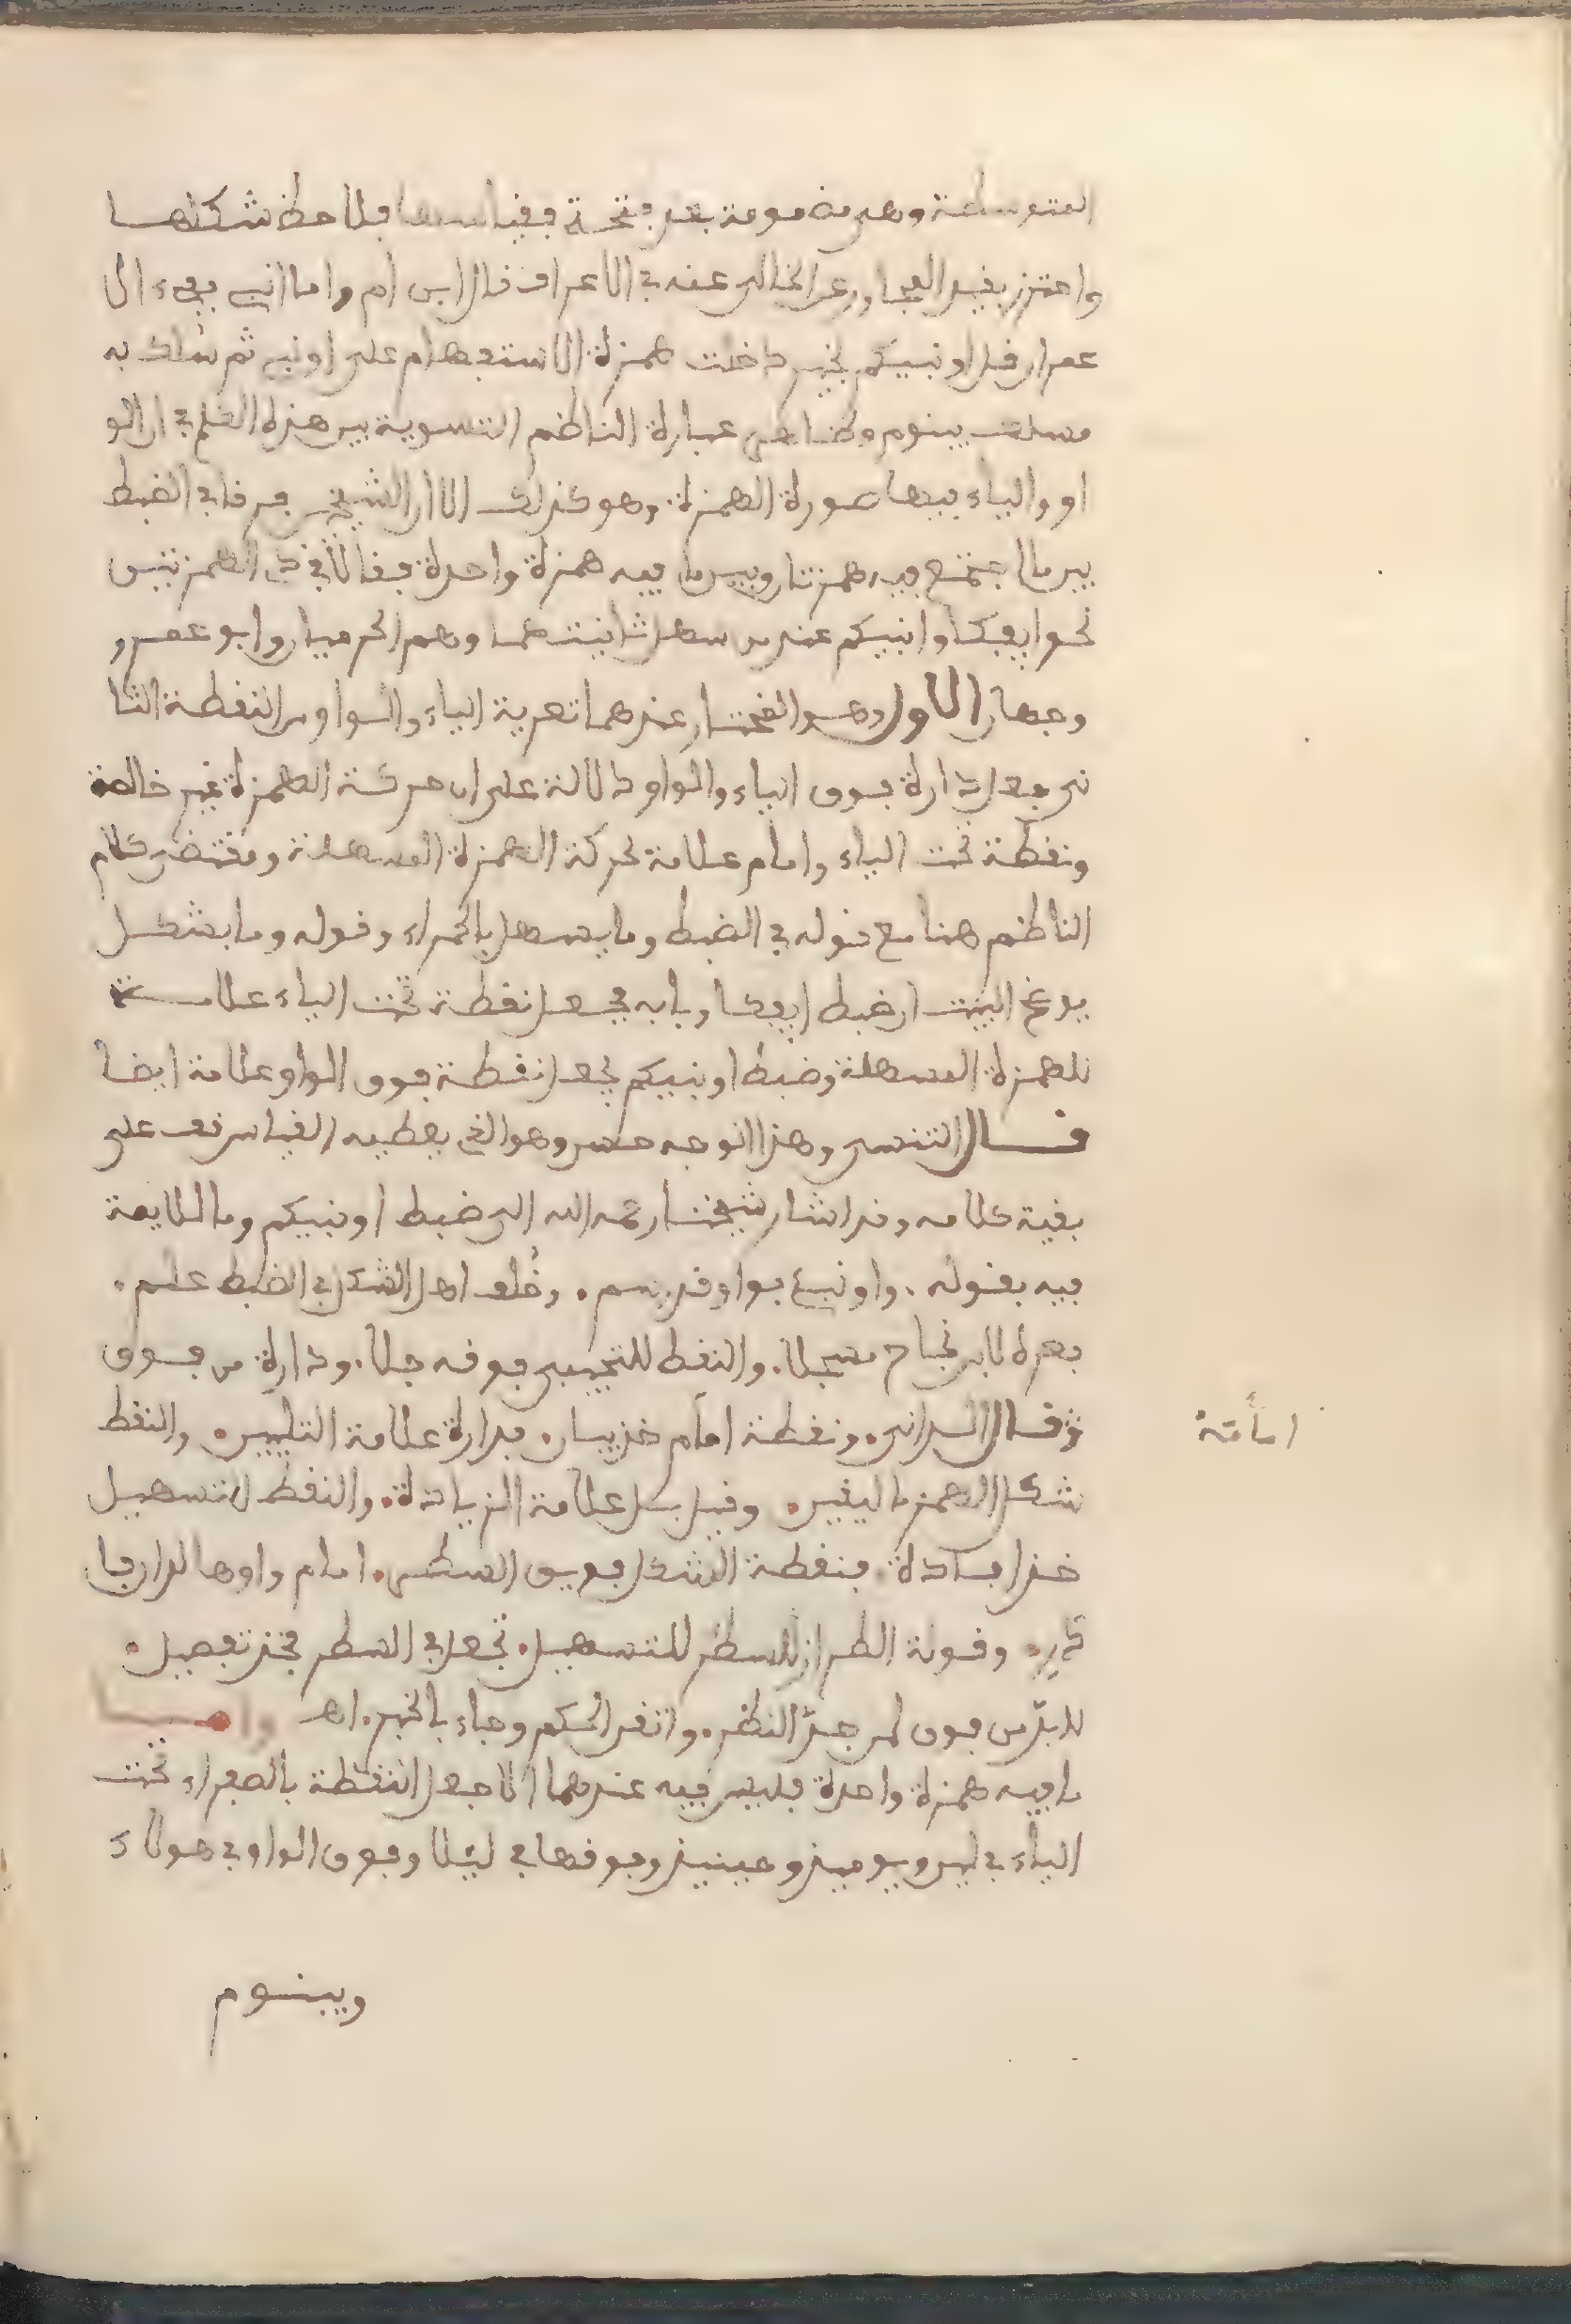 المتوسطة وهي مضمومة بعد فتحة فقياسها فلاحظ شكلها
واحترز بقيد المجاور عن الخالي عنه في الاعراف قال ابن ام واما انبي ففي ءال
عمران قل اونبيكم بخير دخلت همزة الاستفهام على اونبي ثم سلك به
مسلك يبنوم وظاهر عبارة الناظم التسوية بين هذه الكلم في ان الو
او والياء فيها صورة الهمزة وهو كذلك الا ان الشيخين فرقا في الضبط
بين ما اجتمع فيه همزتان وبين ما فيه همزة واحدة فقالا في ذي الهمزتين
نحو ايفكا واونبيكم عند من سهل ثانيتهما وهم الحرميان وابو عمرو
وجهان الاول وهو المختار عندهما تعرية الياء والواو من النقطة الثا
ني جعل دارة فوق الياء والواو دلالة على ان حركة الهمزة غير خالصة
ونقطة تحت الياء وامام علامة لحركة الهمزة المسهلة ومقتضى كلام
الناظم هنا مع قوله في الضبط وما يسهل بالحمراء وقوله وما بشكل
فوق البيت ان ضبط ايفكا وبابه بجعل نقطة تحت الياء علامة
للهمزة المسهلة وضبط اونبيكم بجعل نقطة فوق الواو علامة ايضا
قال التنسي وهذا الوجه حسن وهو الذي يعطيه القياس قف على
بقية كلامه وقد اشار شيخنا رحمه الله الى ضبط اونبيكم وما للايمة
فيه بقوله . واونبئ بواو قد رسم . وخلف اهل الشكل في الضبط علم .
بعده لابن نجاح مسجلا . والنقط للتجيبي فوقه جلا . ودارة من فوق
وقال الداني . ونقطة امام خذ بيان . فدارة علامة التليين . والنقط
شكل الهمز ما ليقين . وقيل بل علامة الزيادة . والنقط لتسهيل
خذ افادة . فنقطة الشكل فويق السطر . امام واوها للدار فا
در . وقولة الطراز للسطر للتسهيل . تجعل في السطر فخذ تفصيل .
لابد من فوق لمن جد النظر . واتقد الحكم وجاء بالخبر . اهـ واما
ما فيه همزة واحدة فليس فيه عندهما الا جعل النقطة بالصفراء تحت
الياء في لين ويوميذ وحينيذ وفوقها في ليلا وفوق الواو في هولاء
ويبنوم
امامه